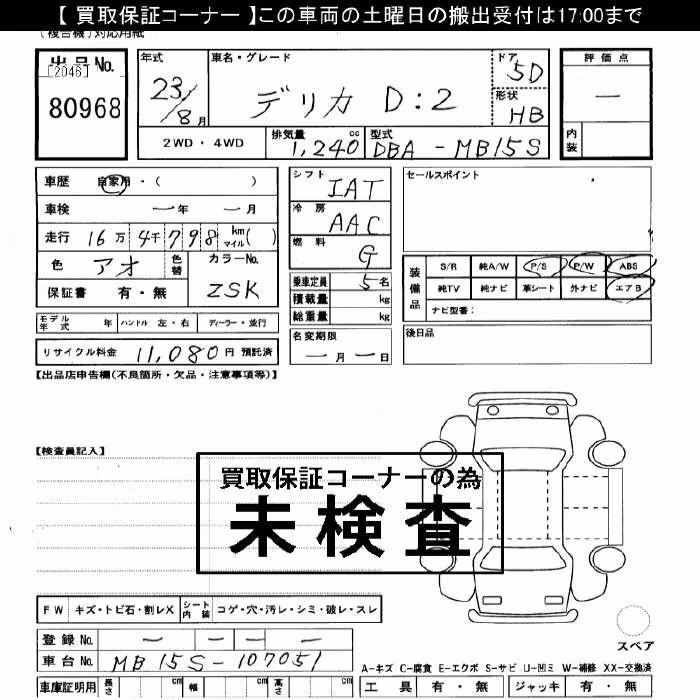 【 買取保証コーナー 】この車両の土曜日の搬出受付は17:00まで
(複合機)対応用紙
出品No.
[2046]
80968
年式
23/8月
車名・グレード
デリカ D:2
ドア
5D
形状
HB
2WD・4WD
排気量
1,240cc
型式
DBA-MB15S
評価点
―
内装
車歴 自家用・( )
車検 ―年 ―月
走行 16万4千798 km マイル( )
色 アオ 色替
カラーNo. ZSK
保証書 有・無
モデル年式 年 ハンドル 左・右 ディーラー・並行
リサイクル料金 11,080円 預託済
シフト IAT
冷房 AAC
燃料 G
乗車定員 5名
積載量 kg
総重量 kg
名変期限
―月―日
セールスポイント
装備品
S/R 純A/W P/S P/W ABS
純TV 純ナビ 革シート 外ナビ エアB
ナビ型番:
後日品
【出品店申告欄(不良箇所・欠品・注意事項等)】
【検査員記入】
買取保証コーナーの為
未検査
FW キズ・トビ石・割レX シート内装 コゲ・穴・汚レ・シミ・破レ・スレ
登録No. ― ― ― ―
車台No. MB15S-107051
車庫証明用 長さ cm 幅 cm 高さ cm
スペア
A-キズ C-腐食 E-エクボ S-サビ U-凹ミ W-補修 XX-交換済
工具 有・無 ジャッキ 有・無